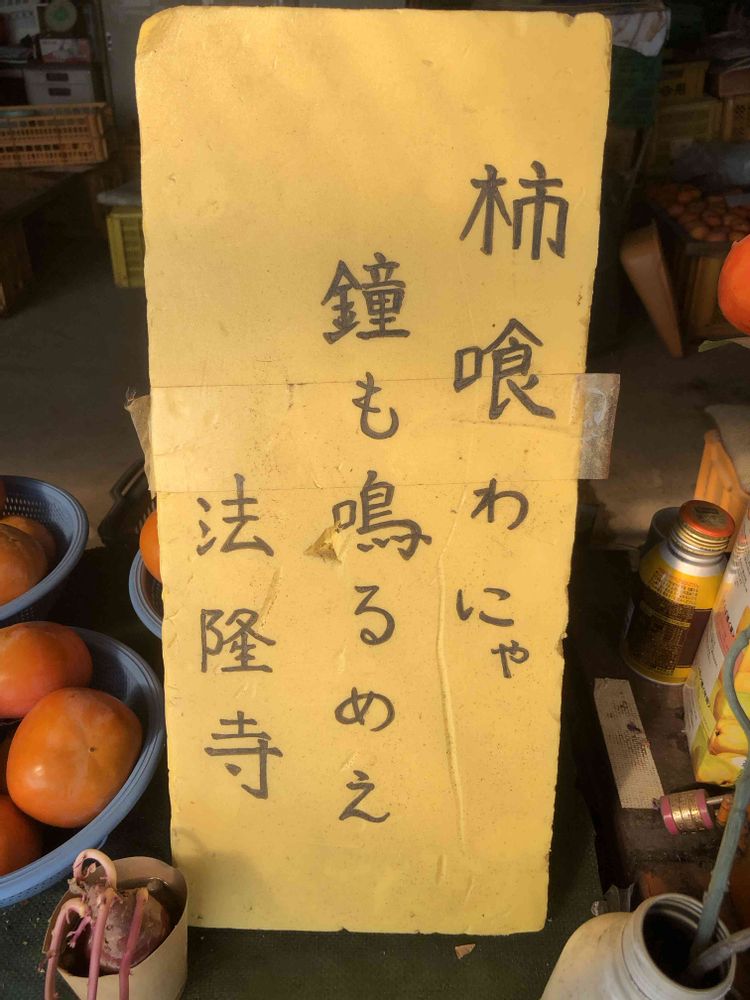 柿喰わにゃ
鐘も鳴るめえ
法隆寺